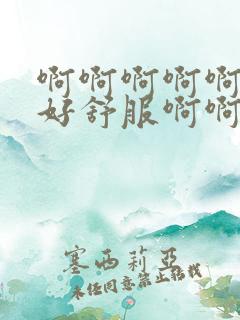 啊啊啊啊啊
好舒服啊啊
塞西莉亚
未经同意禁止转载